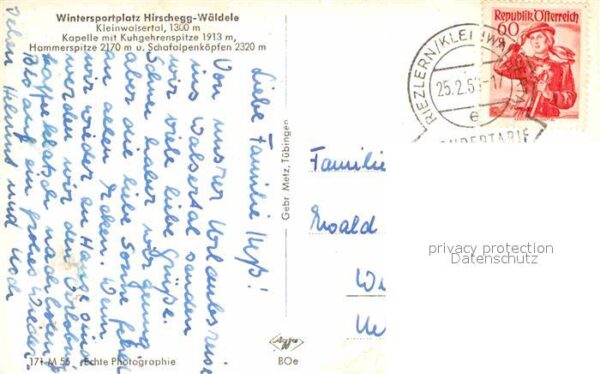 Wintersportplatz Hirschegg-Wäldele
Kleinwalsertal, 1300 m
Kapelle mit Kuhgehrenspitze 1913 m,
Hammerspitze 2170 m u. Schafalpenköpfen 2320 m
Republik Österreich
60
RIEZLERN/KLEINWALSERTAL
25.2.5
e
Liebe Familie
Von unsrer Urlaubsreise
ins Walsertal senden
wir viele liebe Grüße.
Schnee haben wir genug
aber die liebe Sonne fehlt
an allen Ecken. Wenn
wir wieder zu Hause sind
werden wir den
Kaffeeklatsch nachholen.
Bis auf ein frohes Wieder-
sehen Helmut und
Gebr. Metz, Tübingen
Familie
Ewald
privacy protection
Datenschutz
171 M 56 Echte Photographie
Agfa
BOe